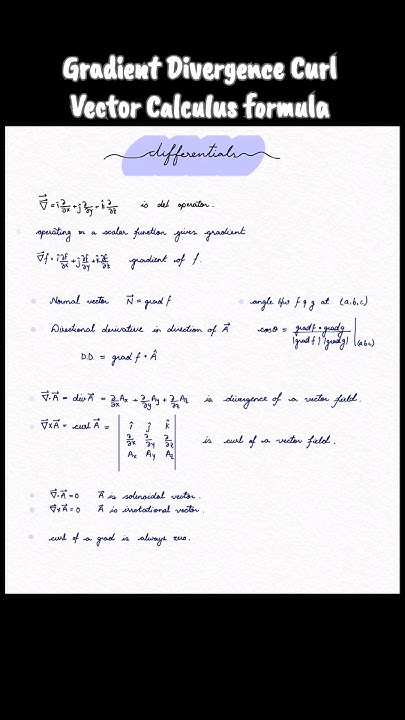 Gradient Divergence Curl
Vector Calculus formula
differentials
∇⃗ = î ∂/∂x + ĵ ∂/∂y + k̂ ∂/∂z is del operator.
operating on a scalar function gives gradient
∇⃗f = î ∂f/∂x + ĵ ∂f/∂y + k̂ ∂f/∂z gradient of f.
Normal vector N⃗ = grad f
angle b/w f & g at (a,b,c)
Directional derivative in direction of A⃗
cosθ = grad f • grad g / |grad f| |grad g| |(a,b,c)
D.D. = grad f • Â
∇⃗•A⃗ = div A⃗ = ∂/∂x Ax + ∂/∂y Ay + ∂/∂z Az is divergence of a vector field.
∇⃗×A⃗ = curl A⃗ = | î ĵ k̂ |
| ∂/∂x ∂/∂y ∂/∂z | is curl of a vector field.
| Ax Ay Az |
∇⃗•A⃗ = 0 A⃗ is solenoidal vector.
∇⃗×A⃗ = 0 A⃗ is irrotational vector.
curl of a grad is always zero.